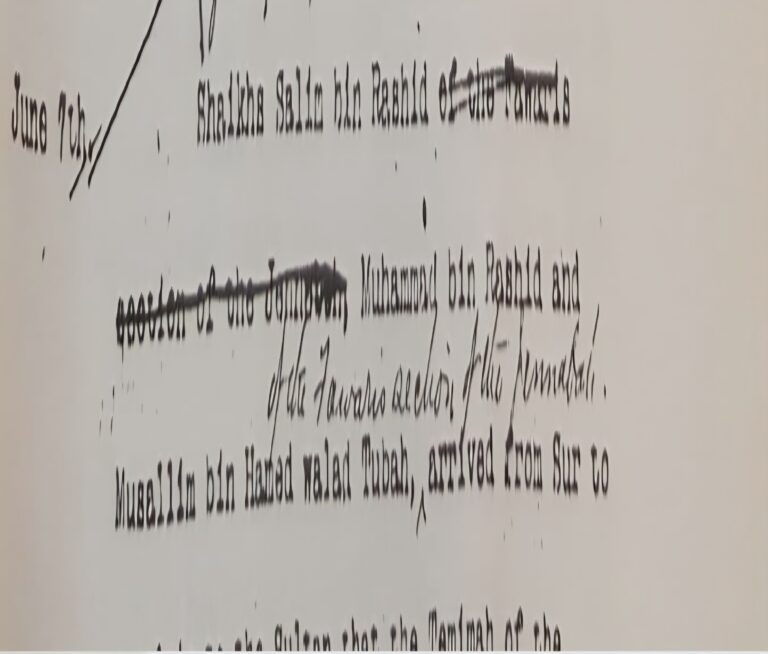 June 7th, Shaikhs Salim bin Rashid of the Fawaris
section of the Jennebeh, Muhammad bin Rashid and
of the Fawaris section of the Jennebeh.
Musallim bin Hamed walad Tubah, arrived from Sur to
the Sultan that the Temimah of the